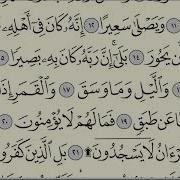 وَيَصْلَىٰ سَعِيرًا ١٢ إِنَّهُۥ كَانَ فِىٓ أَهْلِهِۦ
يَحُورَ ١٤ بَلَىٰٓ إِنَّ رَبَّهُۥ كَانَ بِهِۦ بَصِيرًا ١٥
وَٱلَّيْلِ وَمَا وَسَقَ ١٧ وَٱلْقَمَرِ إِذَا
عَن طَبَقٍ ١٩ فَمَا لَهُمْ لَا يُؤْمِنُونَ ٢٠
لَا يَسْجُدُونَ ۩ ٢١ بَلِ ٱلَّذِينَ كَفَرُوا۟